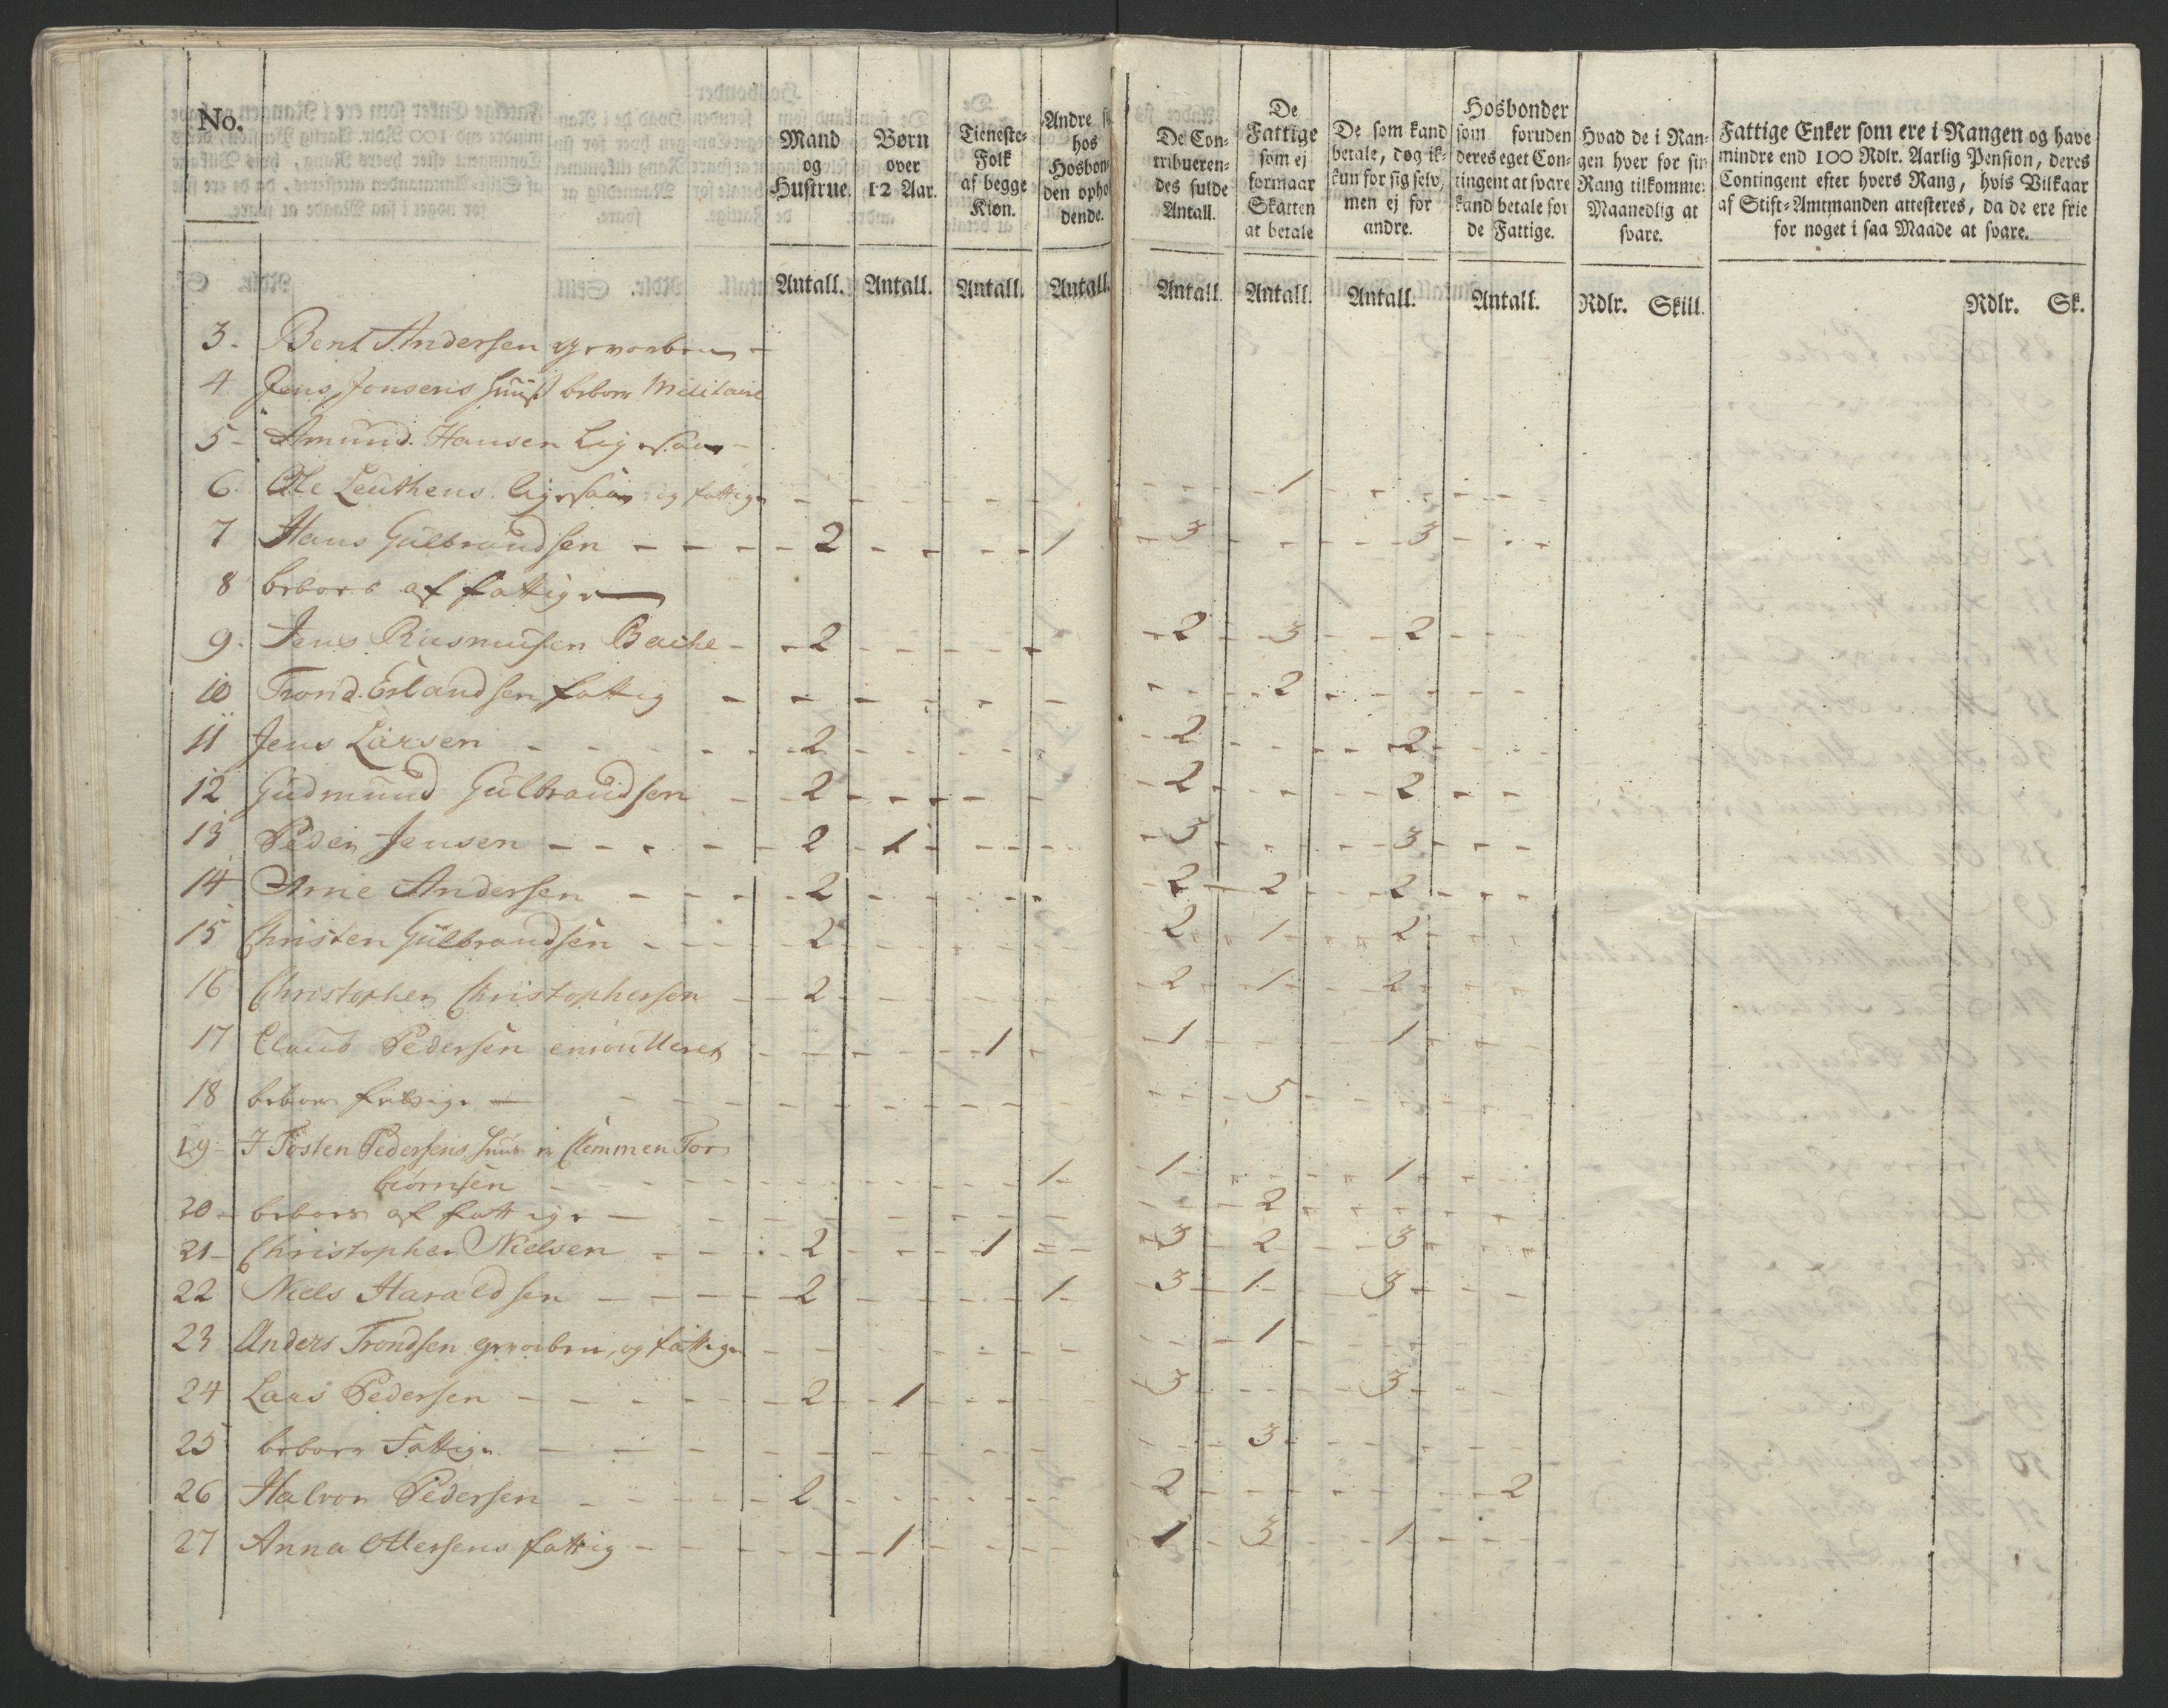 No.
Mand og Hustrue. Antall.
Børn over 12 Aar. Antall.
Tieneste-Folk af begge Kiøn. Antall.
Andre hos Hosbon-den opho-dende. Antall.
De Con-tribueren-des fulde Antall. Antall
De Fattige som ej formaar Skatten at betale Antall.
De som kand betale, dog ik-kun for sig selv, men ej for andre. Antall.
Hosbonder som foruden deres eget Con-tingent at svare kand betale for de Fattige. Antall.
Hvad de i Ran-gen hver for sin Rang tilkommer Maanedlig at svare. Rdlr. Skill.
Fattige Enker som ere i Rangen og have mindre end 100 Rdlr. Aarlig Pension, deres Contingent efter hvers Rang, hvis Vilkaar af Stift-Amtmanden attesteres, da de ere frie for noget i saa Maade at svare. Rdlr. Sk.
3. Bent Andersen
4 Jens Jonsens huus beboer Militaire
5 - Amund Hansen Ligesaa -
6. Ole Leuthens ligesaa og fattige - - - - - 1 - - -
7 Hans Gulbrandsen - - - 2 - - - 1 - 3 - - - 3 - - -
8 beboes af fattige
9. Jens Rasmusen Bache - - 2 - - - - - 2 - 3 - - 2 - -
10 Trond Erlandsen fattig - - - - - - - - 2 - - - -
11 Jens Larsen - - - 2 - - - - 2 - - - 2 - - -
12 Gudmund Gulbrandsen - - 2 - - - - - 2 - - - 2 - - -
13 Peder Jensen - - - - 2 - 1 - - - - 3 - - - 3 - - -
14 Arne Andersen - - - - 2 - - - - - 2 - 2 - - 2 - - -
15 Christen Gulbrandsen - - - 2 - - - - 2 - 1 - - 2 - - -
16 Christopher Christophersen - - 2 - - - - 2 - 1 - - 2 - - -
17 Claus Pedersen enroulleret - - - - - 1 - - 1 - - - 1 - - -
18 beboes fattige - - - - - - - - - 5 - - - -
19 - I Tosten Pedersens huus er Clemmen Tor
biørnsen - - - - - - - - 1 - - 1 - - - 1 - - -
20 - beboes af fattige - - - - - - - - 2 - - - -
21 - Christopher Nielsen - - - 2 - - - 1 - - - 3 - 2 - - 3 - - -
22 Niels Haraldsen - - - - 2 - - - - 1 - - 3 - 1 - - 3 - - -
23 Anders Trondsen og fattige - - - - - - - - 1 - - -
24 Lars Pedersen - - - - 2 - 1 - - - - 3 - - - 3 - - -
25 beboes Fattige - - - - - - - - - 3 - - - -
26 Halvor Pedersen - - - - 2 - - - - - 2 - - - - - 2
27 Anna Ollersens fattig - - - - - 1 - - - - 1 - 3 - - 1 - - -